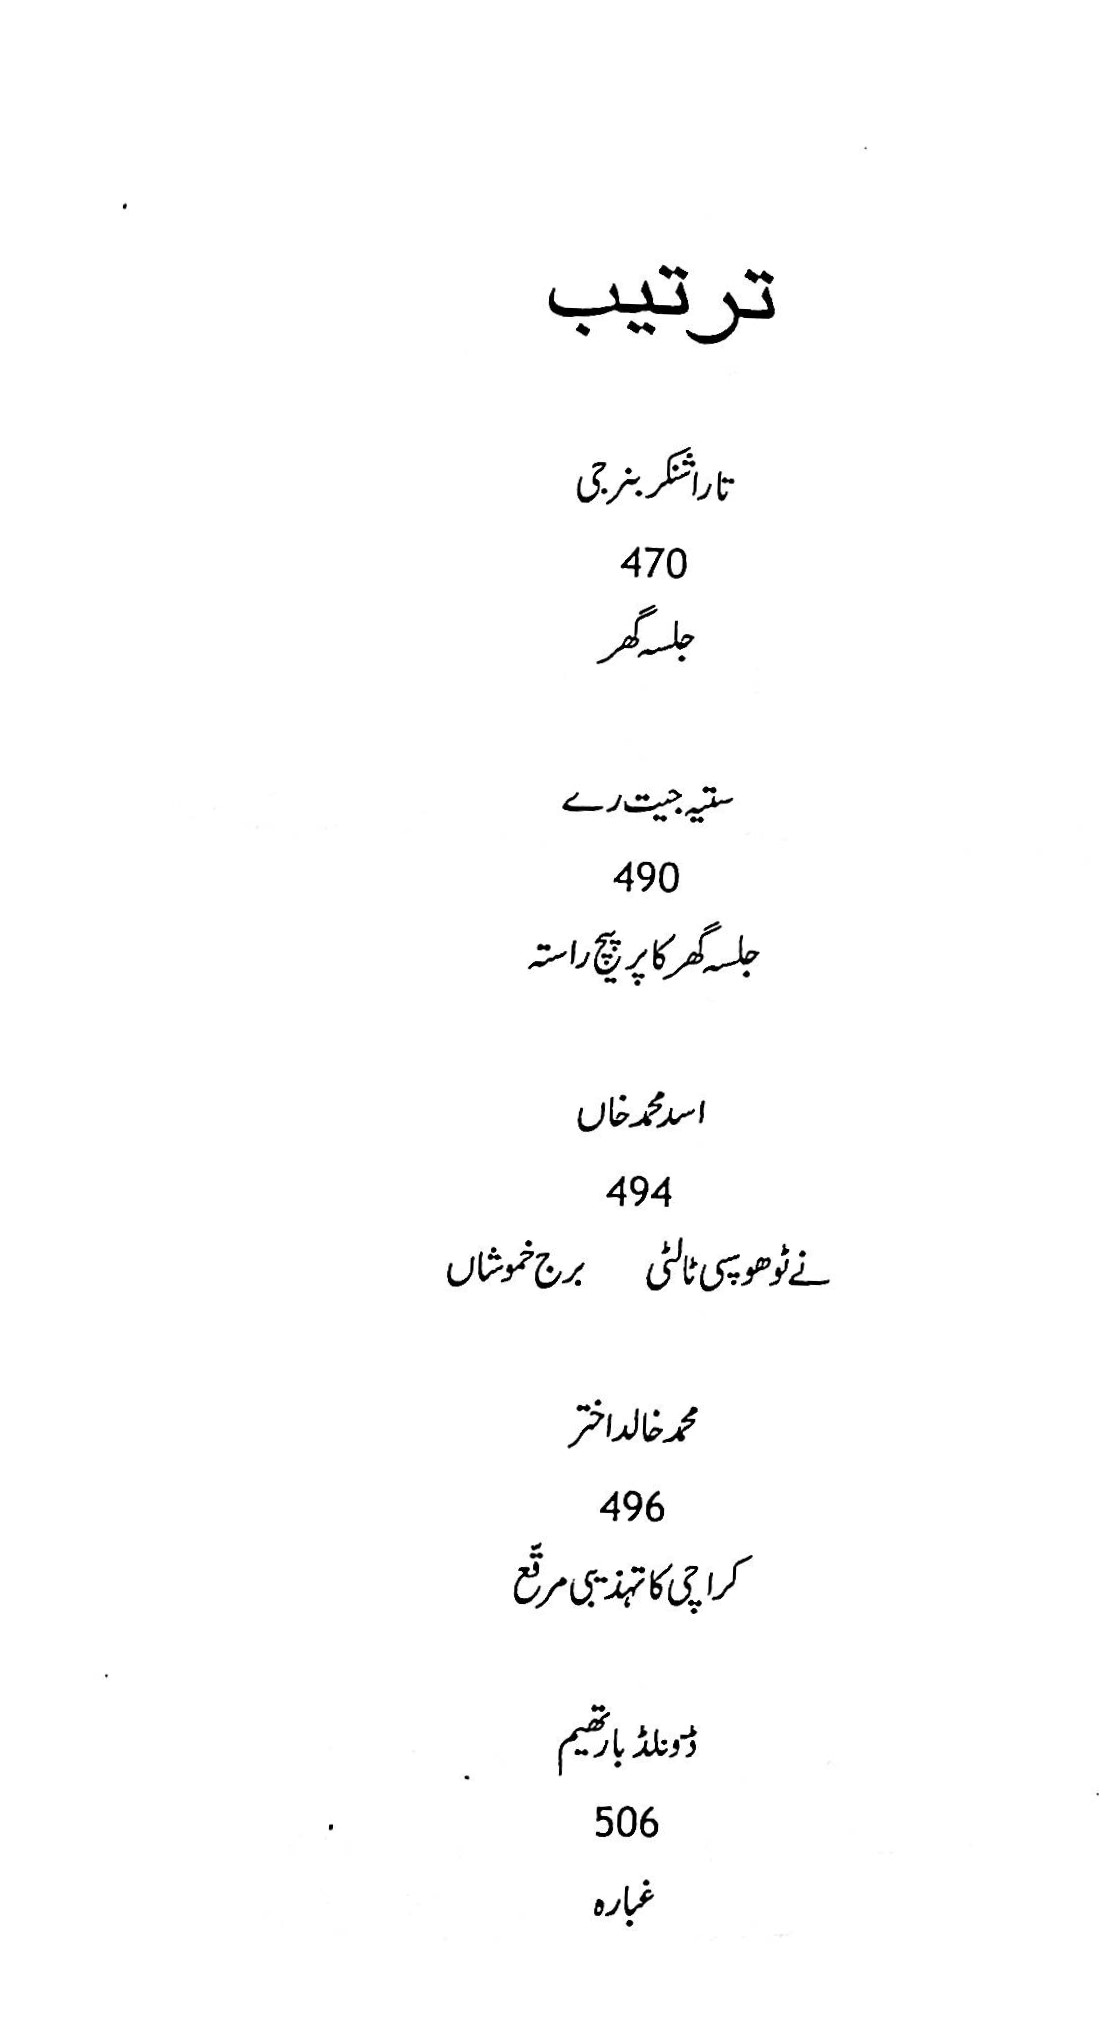 ترتیب
تاراشنکر بنرجی
470
جلسہ گھر
ستیہ جیت رے
490
جلسہ گھر کا پرپیچ راستہ
اسد محمد خاں
494
نے ٹوھوپسی ٹالٹی برج خموشاں
محمد خالد اختر
496
کراچی کا تہذیبی مرقّع
ڈونلڈ بارتھیم
506
غبارہ